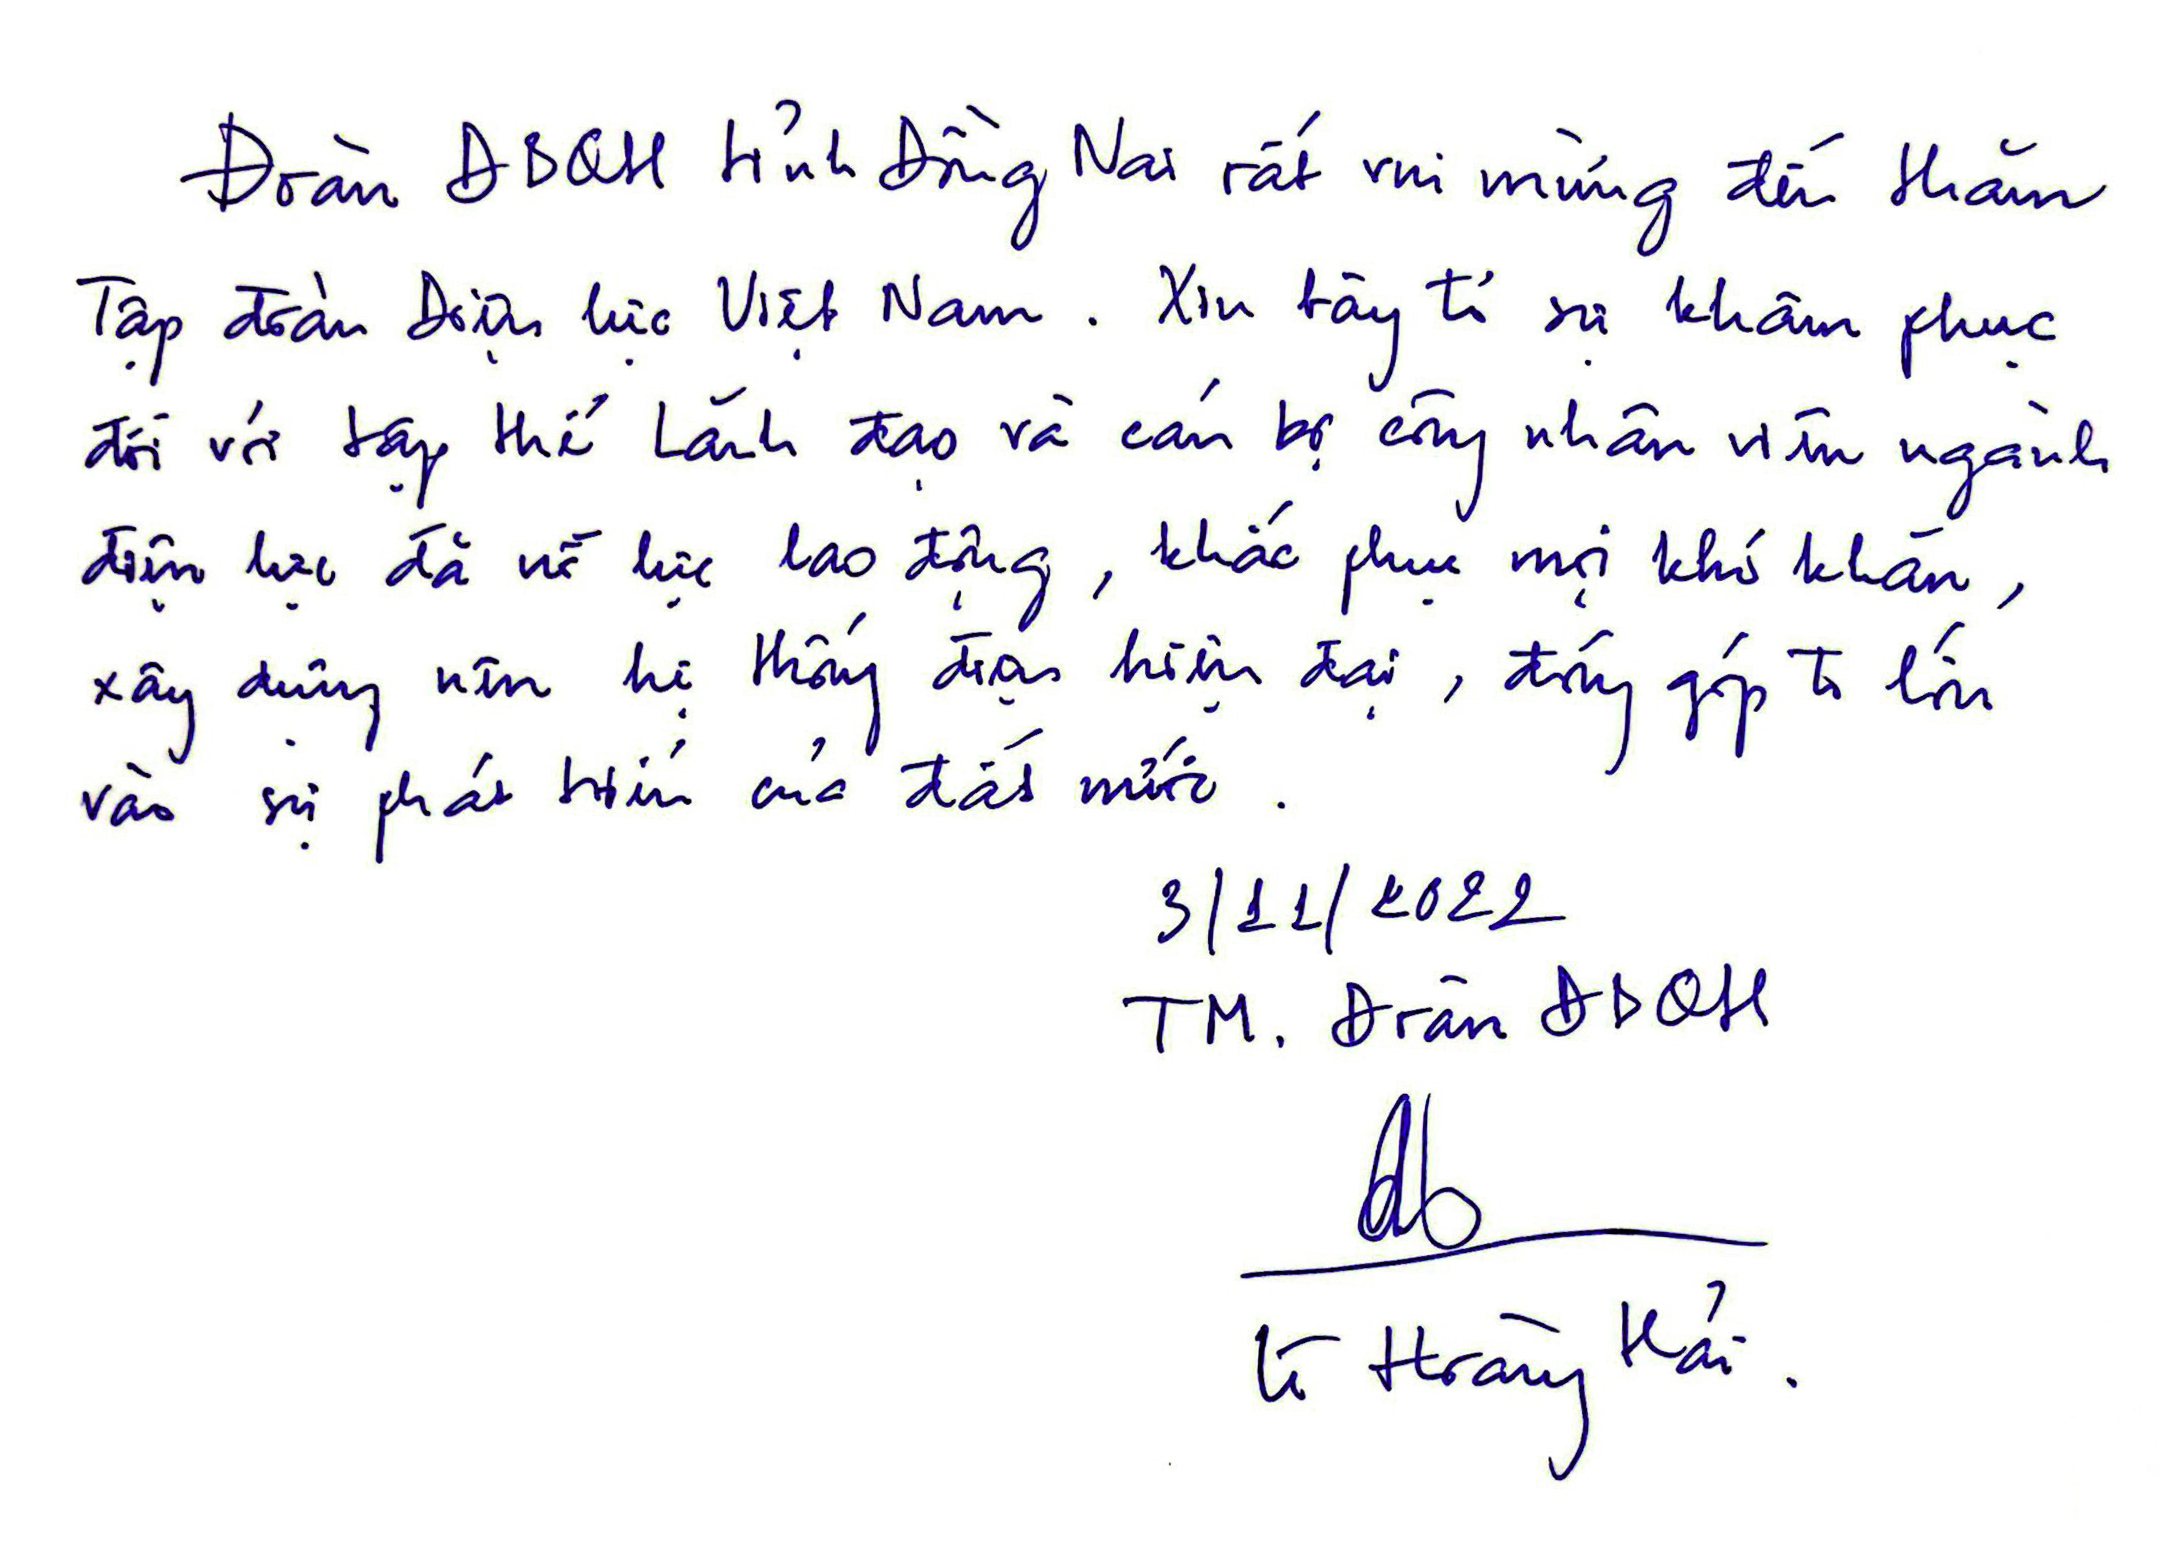 Đoàn ĐBQH tỉnh Đồng Nai rất vui mừng đến thăm
Tập đoàn Điện lực Việt Nam. Xin bày tỏ sự khâm phục
đối với tập thể Lãnh đạo và cán bộ công nhân viên ngành
điện lực đã nỗ lực lao động, khắc phục mọi khó khăn,
xây dựng nên hệ thống điện hiện đại, đóng góp to lớn
vào sự phát triển của đất nước.
3/11/2022
TM. Đoàn ĐBQH
Hoàng Hải.